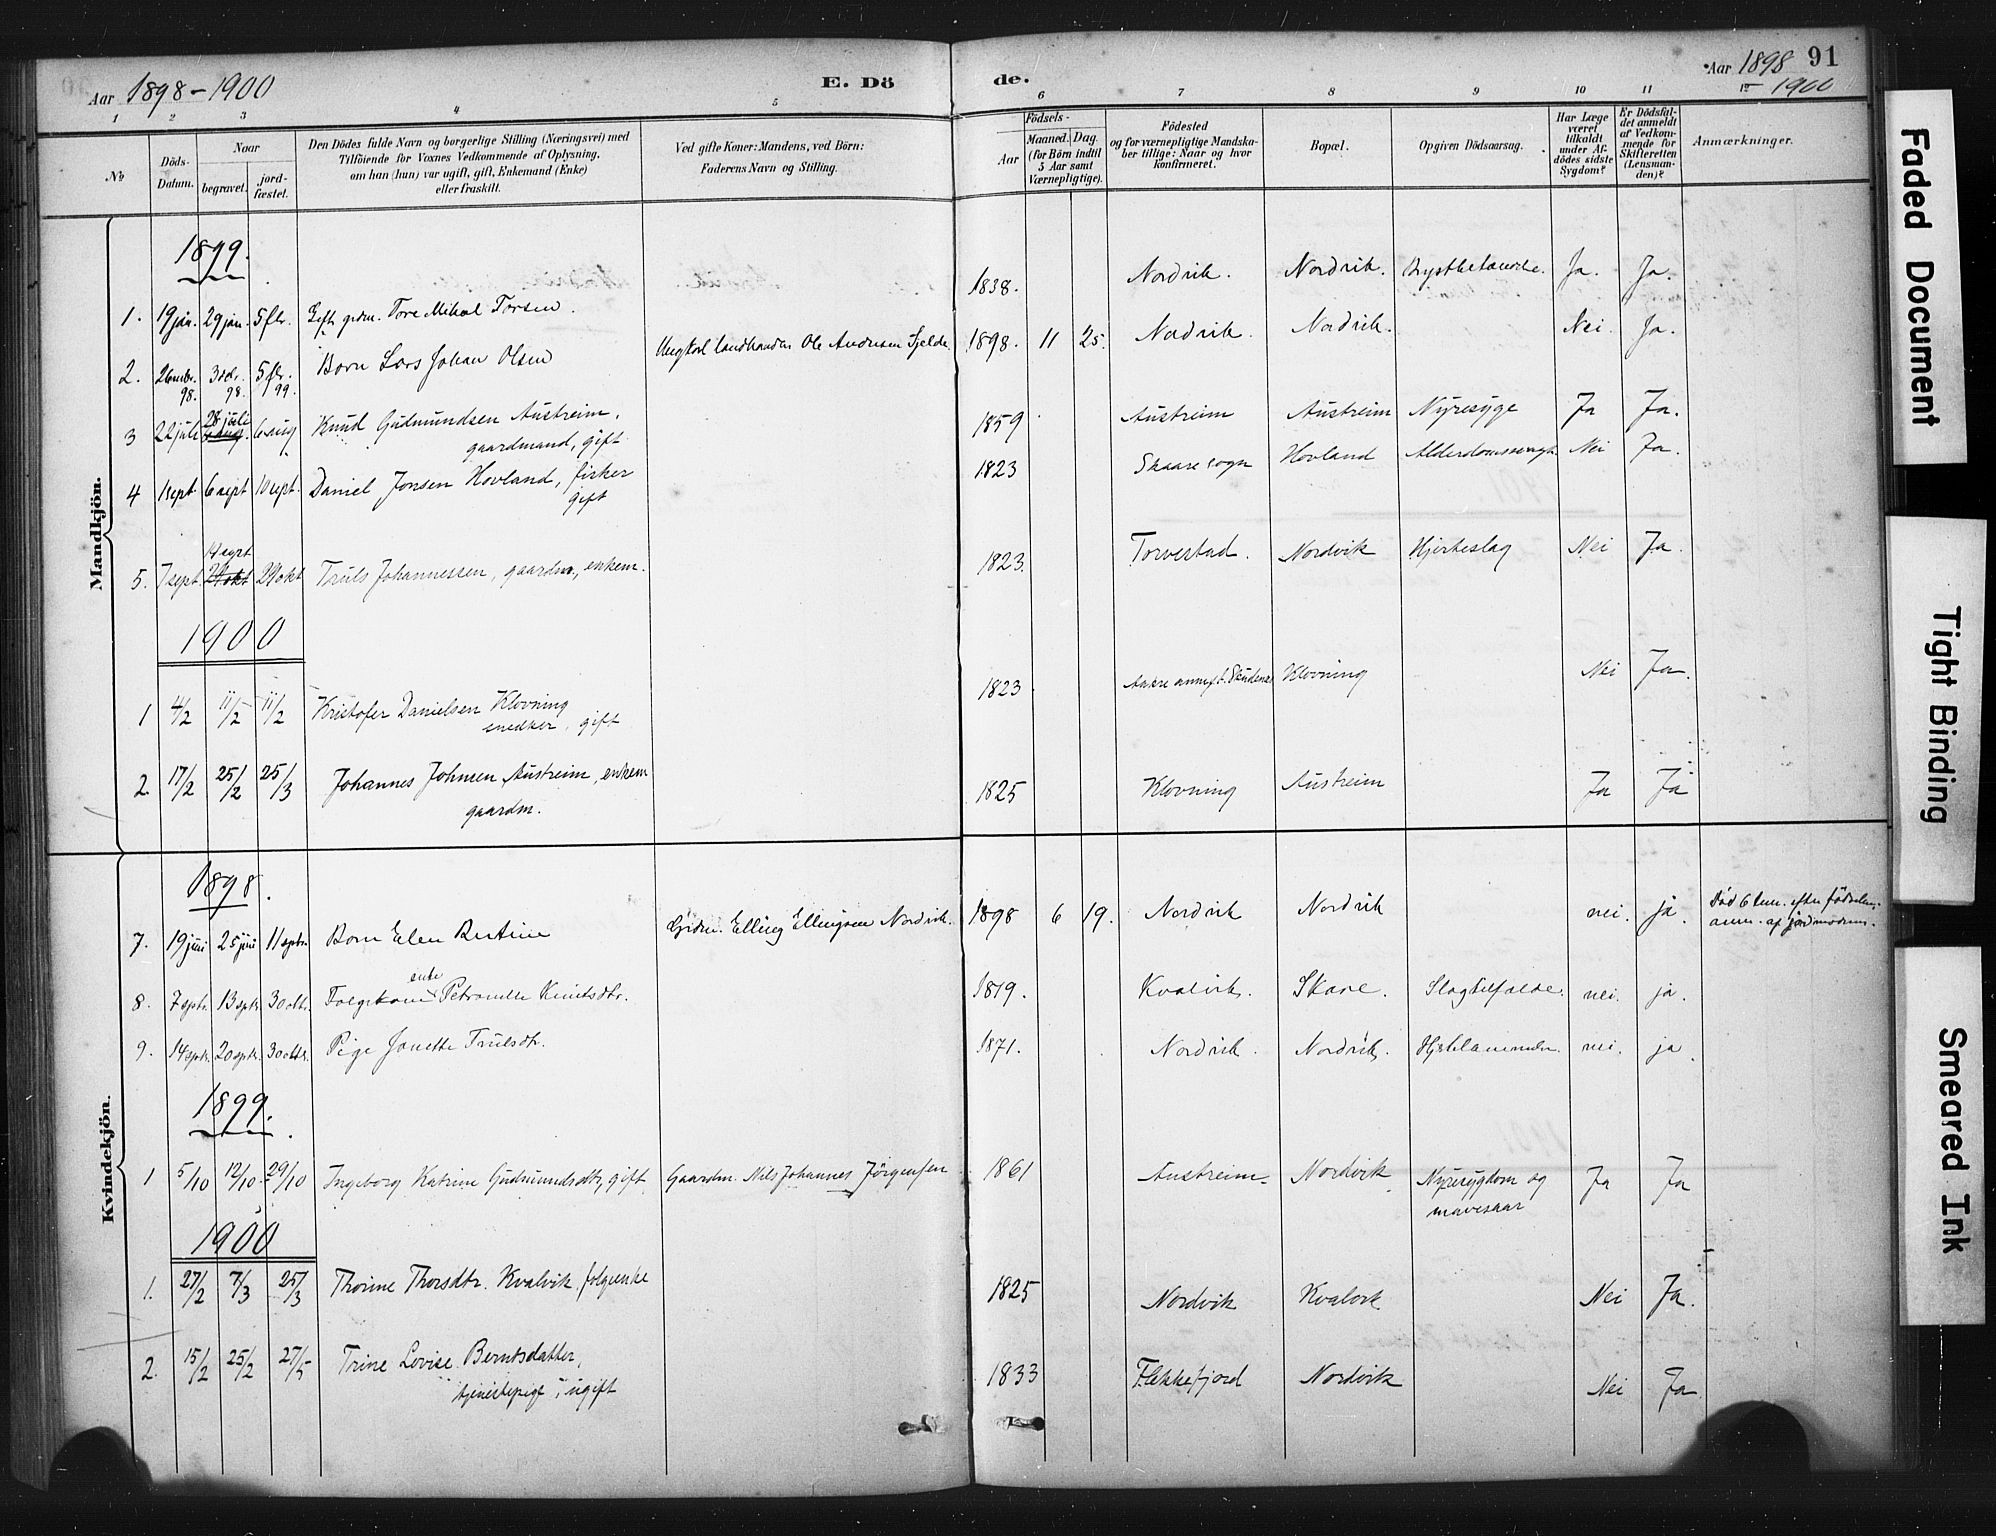 Aar 1898-1900
E. Dö
de.
Aar 1898 91
- 1900
1 2 3 4 5 6 7 8 9 10 11 12
No
Döds-
Datum.
Naar
begravet.
jord-
fæstet.
Den Dödes fulde Navn og borgerlige Stilling (Næringsvei) med
Tilföiende for Voxnes Vedkommende af Oplysning,
om han (hun) var ugift, gift, Enkemand (Enke)
eller fraskilt.
Ved gifte Koner: Mandens, ved Börn:
Faderens Navn og Stilling.
Födsels-
Aar
Maaned. Dag.
(for Börn indtil
5 Aar samt
Værnepligtige).
Födested
og for værnepligtige Mandska-
ber tillige: Naar og hvor
konfirmeret.
Bopæl.
Opgiven Dödsaarsag.
Har Læge
været
tilkaldt
under Af-
dödes sidste
Sygdom?
Er Dödsfal-
det anmeldt
af Vedkom-
mende for
Skifteretten
(Lensman-
den)?
Anmærkninger.
Mandkjön.
1899.
1. 19 jan. 29 jan. 5 fbr. Gift grdm. Tore Mikal Torsen. 1838. Nordvik. Nordvik. Ja. Ja.
2. 26 98. 3 98. 5 fbr. 99. Barn Lars Johan Olsen Ungkarl landhandler Ole Andersen 1898. 11 25. Nordvik. Nordvik. Nei. Ja.
28 juli
3 22 juli 6 aug. 6 aug Knud Gudmundsen Austreim, 1859 Austreim Austreim Nyresyge Ja Ja.
gaardmand, gift
4 1 sept. 6 sept 10 sept. Daniel Jonsen Hovland, fisker 1823 Skaare sogn Hovland Nei Ja.
gift
14 sept
5. 7 sept. 29 okt 29 okt Truls Johannessen, gaardm, enkem. 1823. Torvestad. Nordvik Hjerteslag Nei Ja.
1900
1 4/2 11/2 11/2 Kristofer Danielsen Klovning 1823 Klovning Nei Ja.
snedker, gift
2. 17/2 25/2 25/3 Johannes Johnsen Austreim, enkem 1825 Klovning Austreim Ja Ja
gaardm.
Kvindekjön.
1898.
7. 19 juni 25 juni 11 sptr. Barn Elen Bertine Grdm. Elling Ellingsen Nordvik. 1898 6 19. Nordvik Nordvik nei. ja. Död 6 tim. efter födselen,
anm. af jordmoderen.
enke
8. 7 sptr. 13 sptr. 30 oktr. Folgekone Petronelle Knutsdtr. 1819. Kvalvik. Skare. Slagtilfælde. nei. ja.
9. 14 sptr. 20 sptr. 30 oktr. Pige Janette Trulsdtr. 1871. Nordvik. Nordvik. nei. ja.
1899.
1 5/10 12/10 29/10 Ingeborg Katrine Gudmundsdtr, gift Gaardm. Nils Johannes Jörgensen 1861 Austreim Nordvik Nyresygdom og Ja Ja
mavesaar
1900
1. 27/2 7/3 25/3 Thorine Thorsdtr. Kvalvik, folgeenke 1825 Nordvik Kvalvik Nei Ja.
2. 15/2 25/2 27/5 Trine Lovise Berntsdatter, 1833 Flekkefjord Nordvik Nei Ja
tjenestepige, ugift
Faded Document
Tight Binding
Smeared Ink